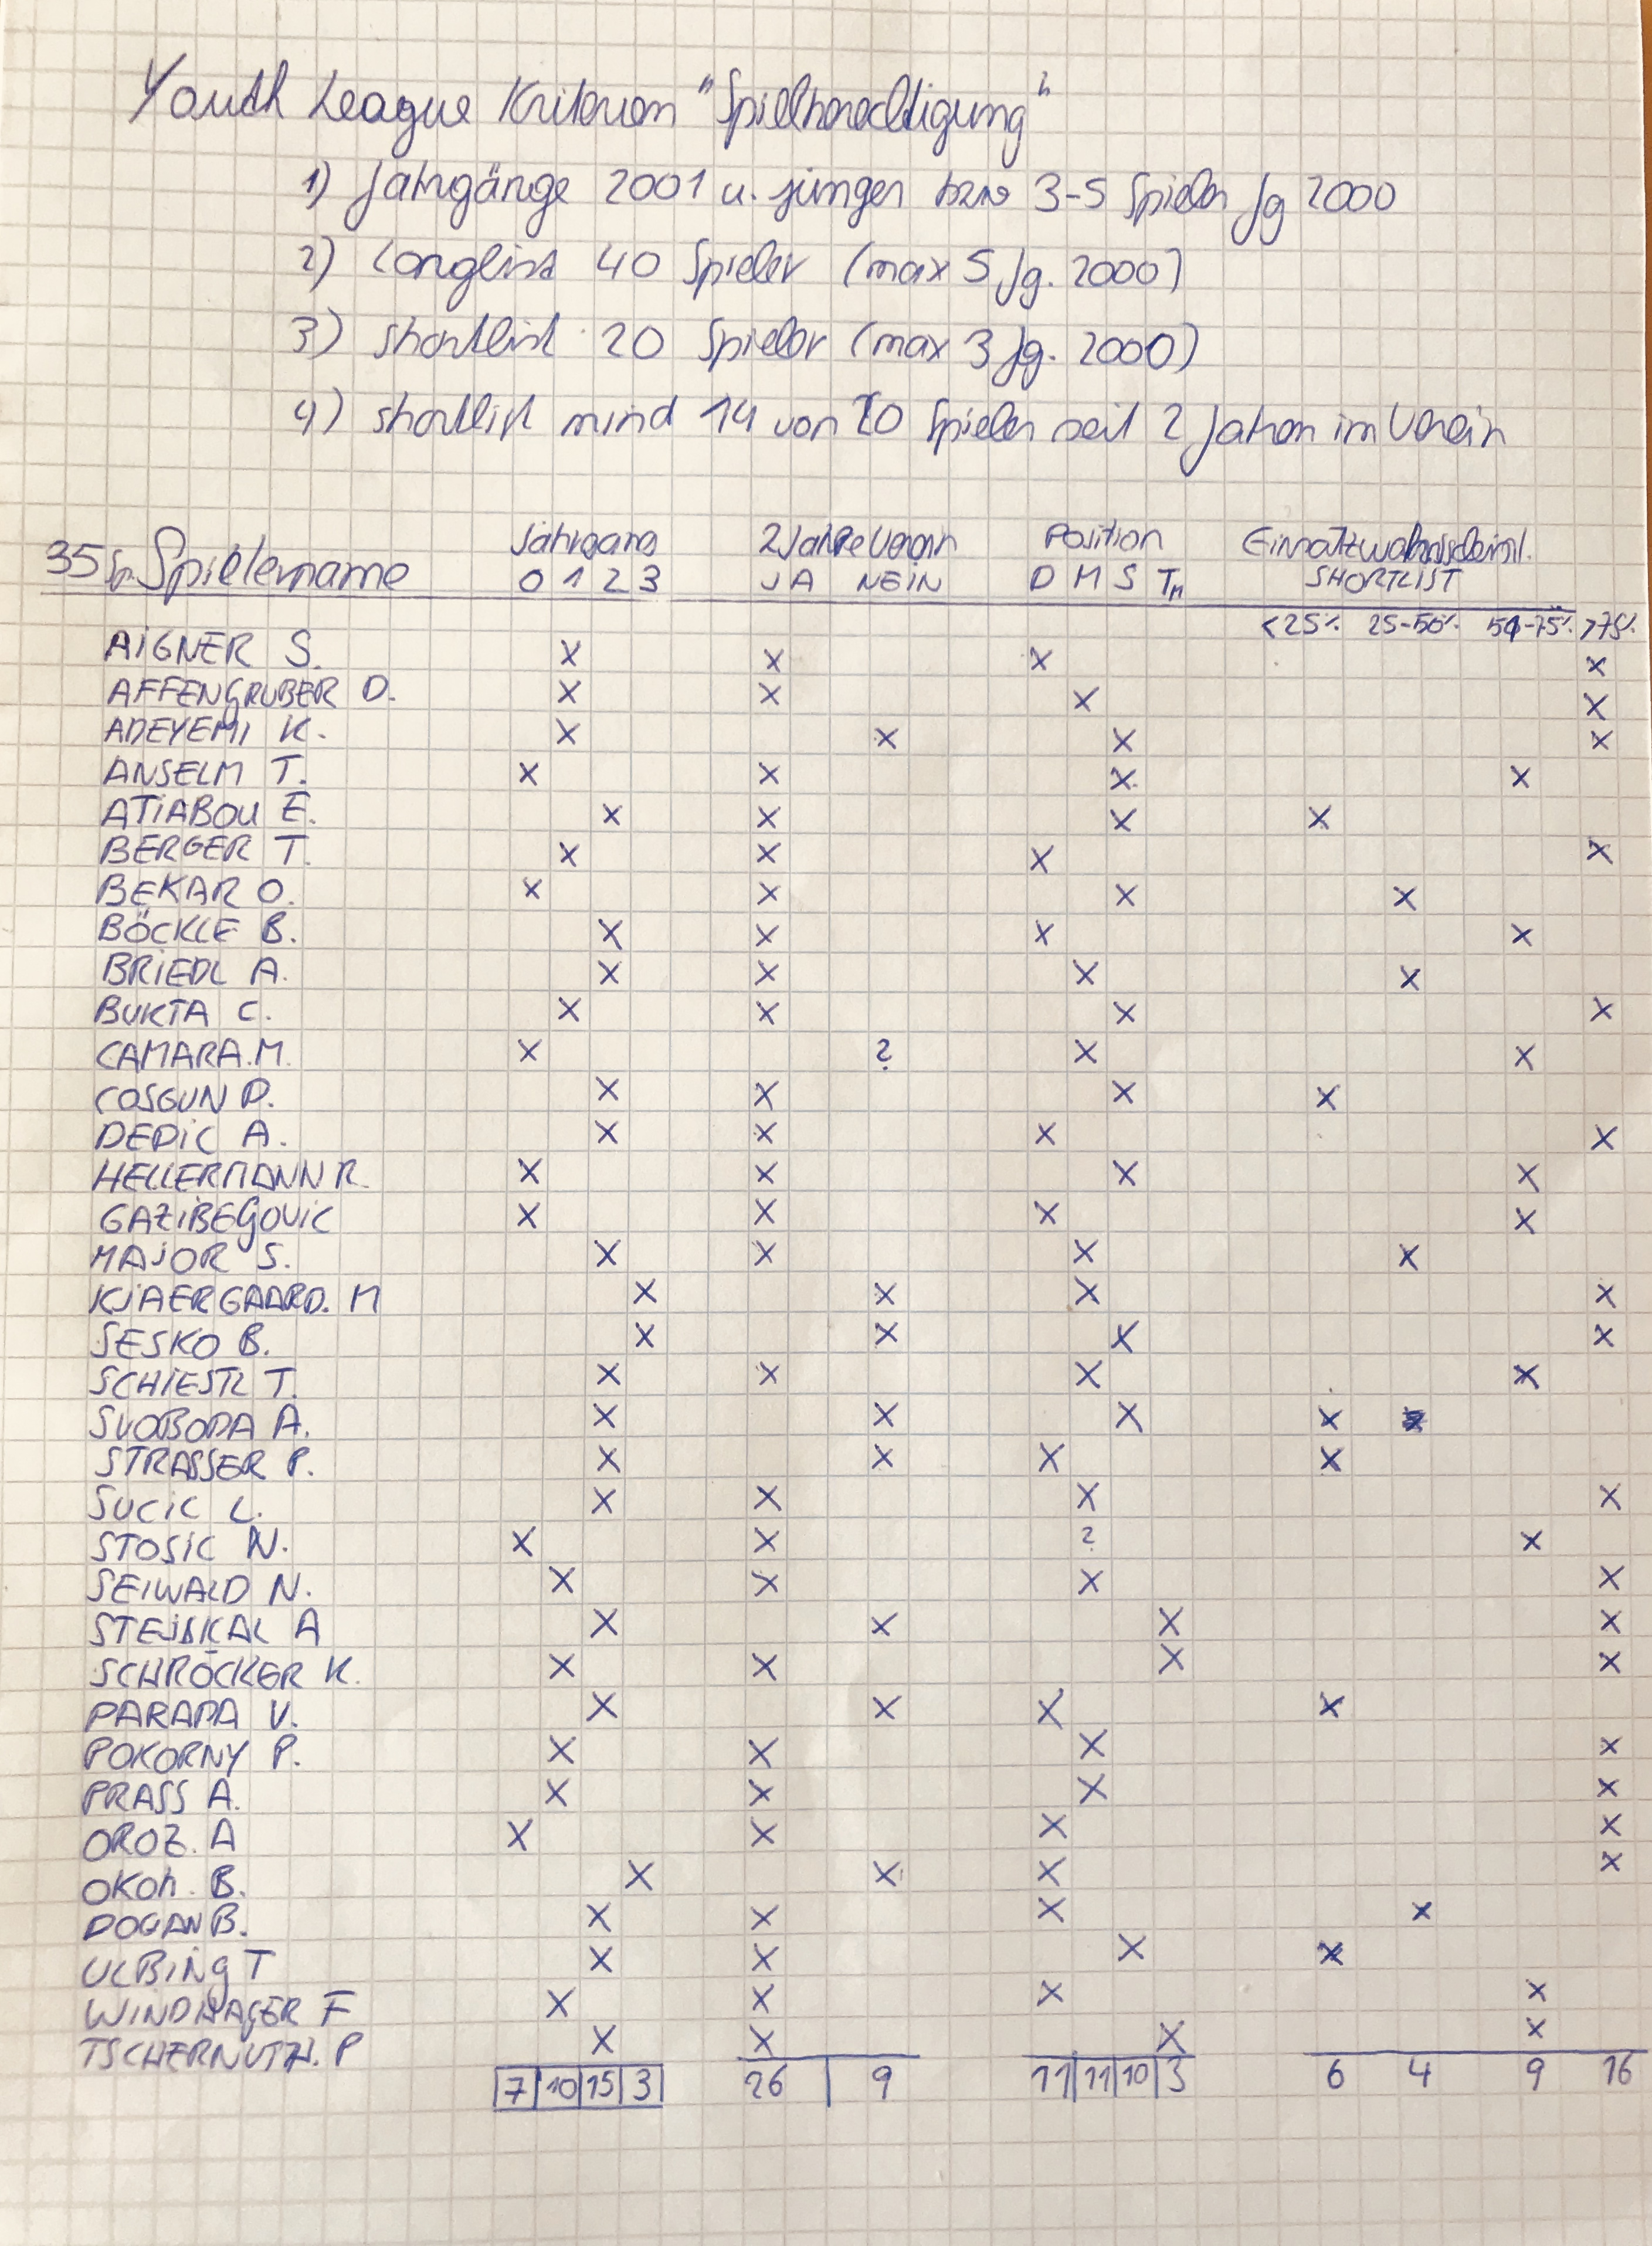 Youth League Kriterien "Spielberechtigung"
1) Jahrgänge 2001 u. jünger bzw 3-5 Spieler Jg 2000
2) Longlist 40 Spieler (max 5 Jg. 2000)
3) Shortlist 20 Spieler (max 3 Jg. 2000)
4) Shortlist mind 14 von 20 Spieler seit 2 Jahren im Verein
Jahrgang 2 Jahre Verein Position Einsatzwahrscheinl.
35 Sp. Spielername 0 1 2 3 JA NEIN D M S Tm SHORTLIST
<25% 25-50% 51-75% >75%
AIGNER S. X X X X
AFFENGRUBER D. X X X X
ADEYEMI K. X X X X
ANSELM T. X X X X
ATIABOU E. X X X X
BERGER T. X X X X
BEKAR O. X X X X
BÖCKLE B. X X X X
BRIEDL A. X X X X
BUKTA C. X X X X
CAMARA.M. X ? X X
COSGUN D. X X X X
DEDIC A. X X X X
HELLERMANN R. X X X X
GAZIBEGOVIC X X X X
MAJOR S. X X X X
KJAERGAARD. M X X X X
SESKO B. X X X X
SCHIESTL T. X X X X
SVOBODA A. X X X X
STRASSER P. X X X X
SUCIC L. X X X X
STOSIC N. X X ? X
SEIWALD N. X X X X
STEJSKAL A X X X X
SCHRÖCKER K. X X X X
PARADA V. X X X X
POKORNY P. X X X X
PRASS A. X X X X
OROZ. A X X X X
OKOH. B. X X X X
DOGAN B. X X X X
ULBING T X X X X
WINDHAGER F X X X X
TSCHERNUTH. P X X X X
7 10 15 3 26 9 11 11 10 3 6 4 9 16